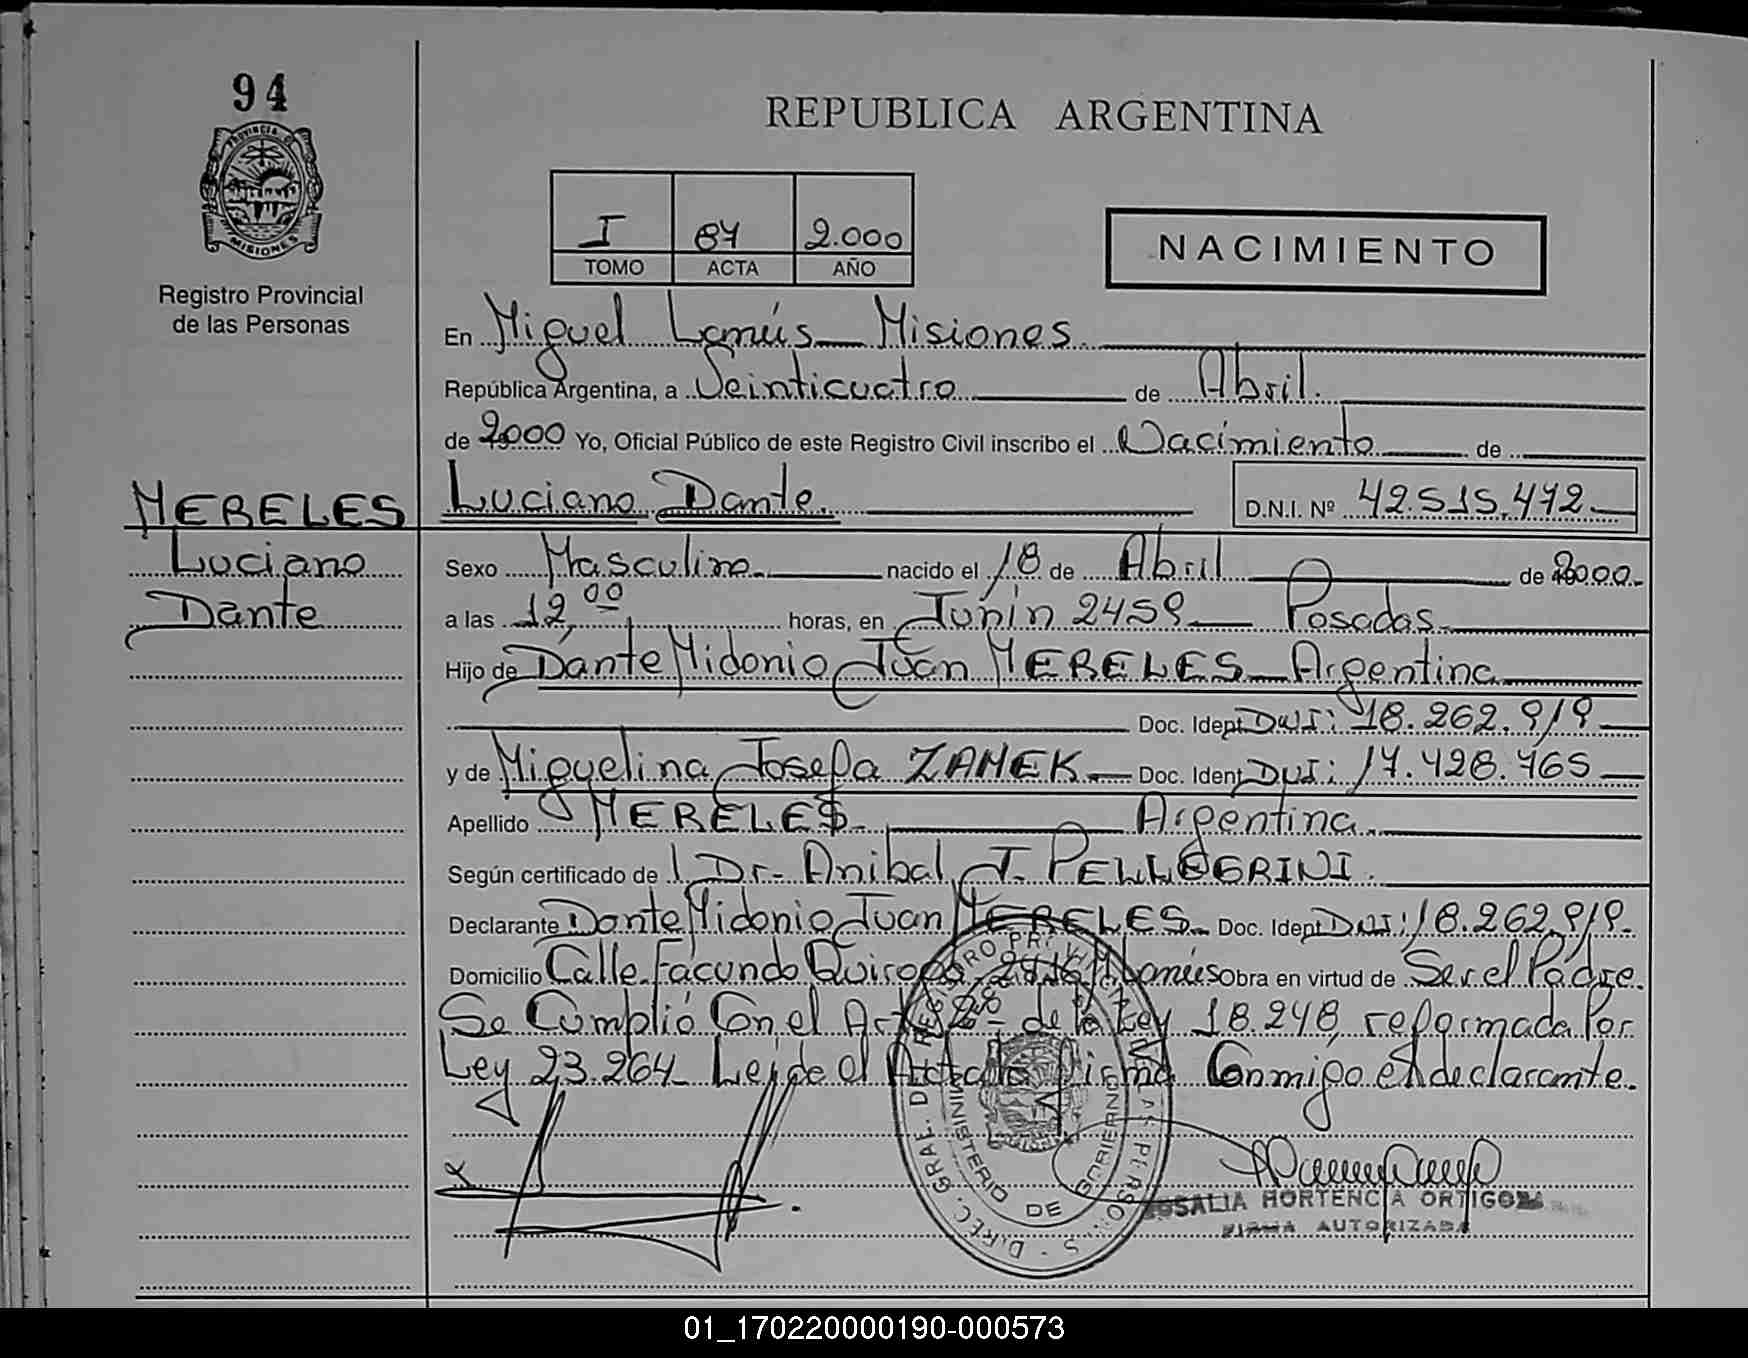 94
PROVINCIA DE
MISIONES
Registro Provincial
de las Personas
REPUBLICA ARGENTINA
I 87 2.000
TOMO ACTA AÑO
NACIMIENTO
En Miguel Lanús Misiones
República Argentina, a Veinticuatro de Abril.
de 2000 Yo, Oficial Público de este Registro Civil inscribo el Nacimiento de
MERELES
Luciano
Dante
Luciano Dante. D.N.I. Nº 42.515.472
Sexo Masculino. nacido el 18 de Abril de 2000.
a las 12,00 horas, en Junin 2459 Posadas.
Hijo de Dante Midonio Juan MERELES Argentina
Doc. Ident DNI: 18.262.919
y de Miguelina Josefa ZAMEK Doc. Ident DNI: 17.428.765
Apellido MERELES Argentina.
Según certificado de Dr. Anibal J. PELLEGRINI.
Declarante Dante Midonio Juan MERELES Doc. Ident DNI: 18.262.919.
Domicilio Calle Facundo Quiroga Lanús Obra en virtud de Ser el Padre.
Se Cumplió Con el Art. 2º de la Ley 18.248, reformada Por
Ley 23.264 Leída el Acta la Firma Conmigo el declarante.
MINISTERIO DE GOBIERNO
ROSALIA HORTENCIA ORTIGOZA
FIRMA AUTORIZADA
01_170220000190-000573